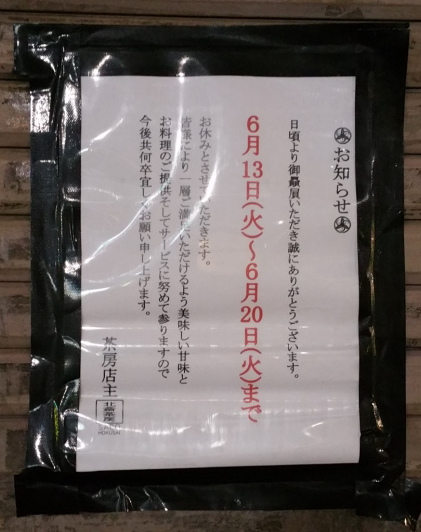 お知らせ
日頃より御贔屓いただき誠にありがとうございます。
6月13日(火)〜6月20日(火)まで
お休みとさせていただきます。
皆様により一層ご満足いただけるよう美味しい甘味と
お料理のご提供そしてサービスに努めて参りますので
今後共何卒宜しくお願い申し上げます。
茶房店主